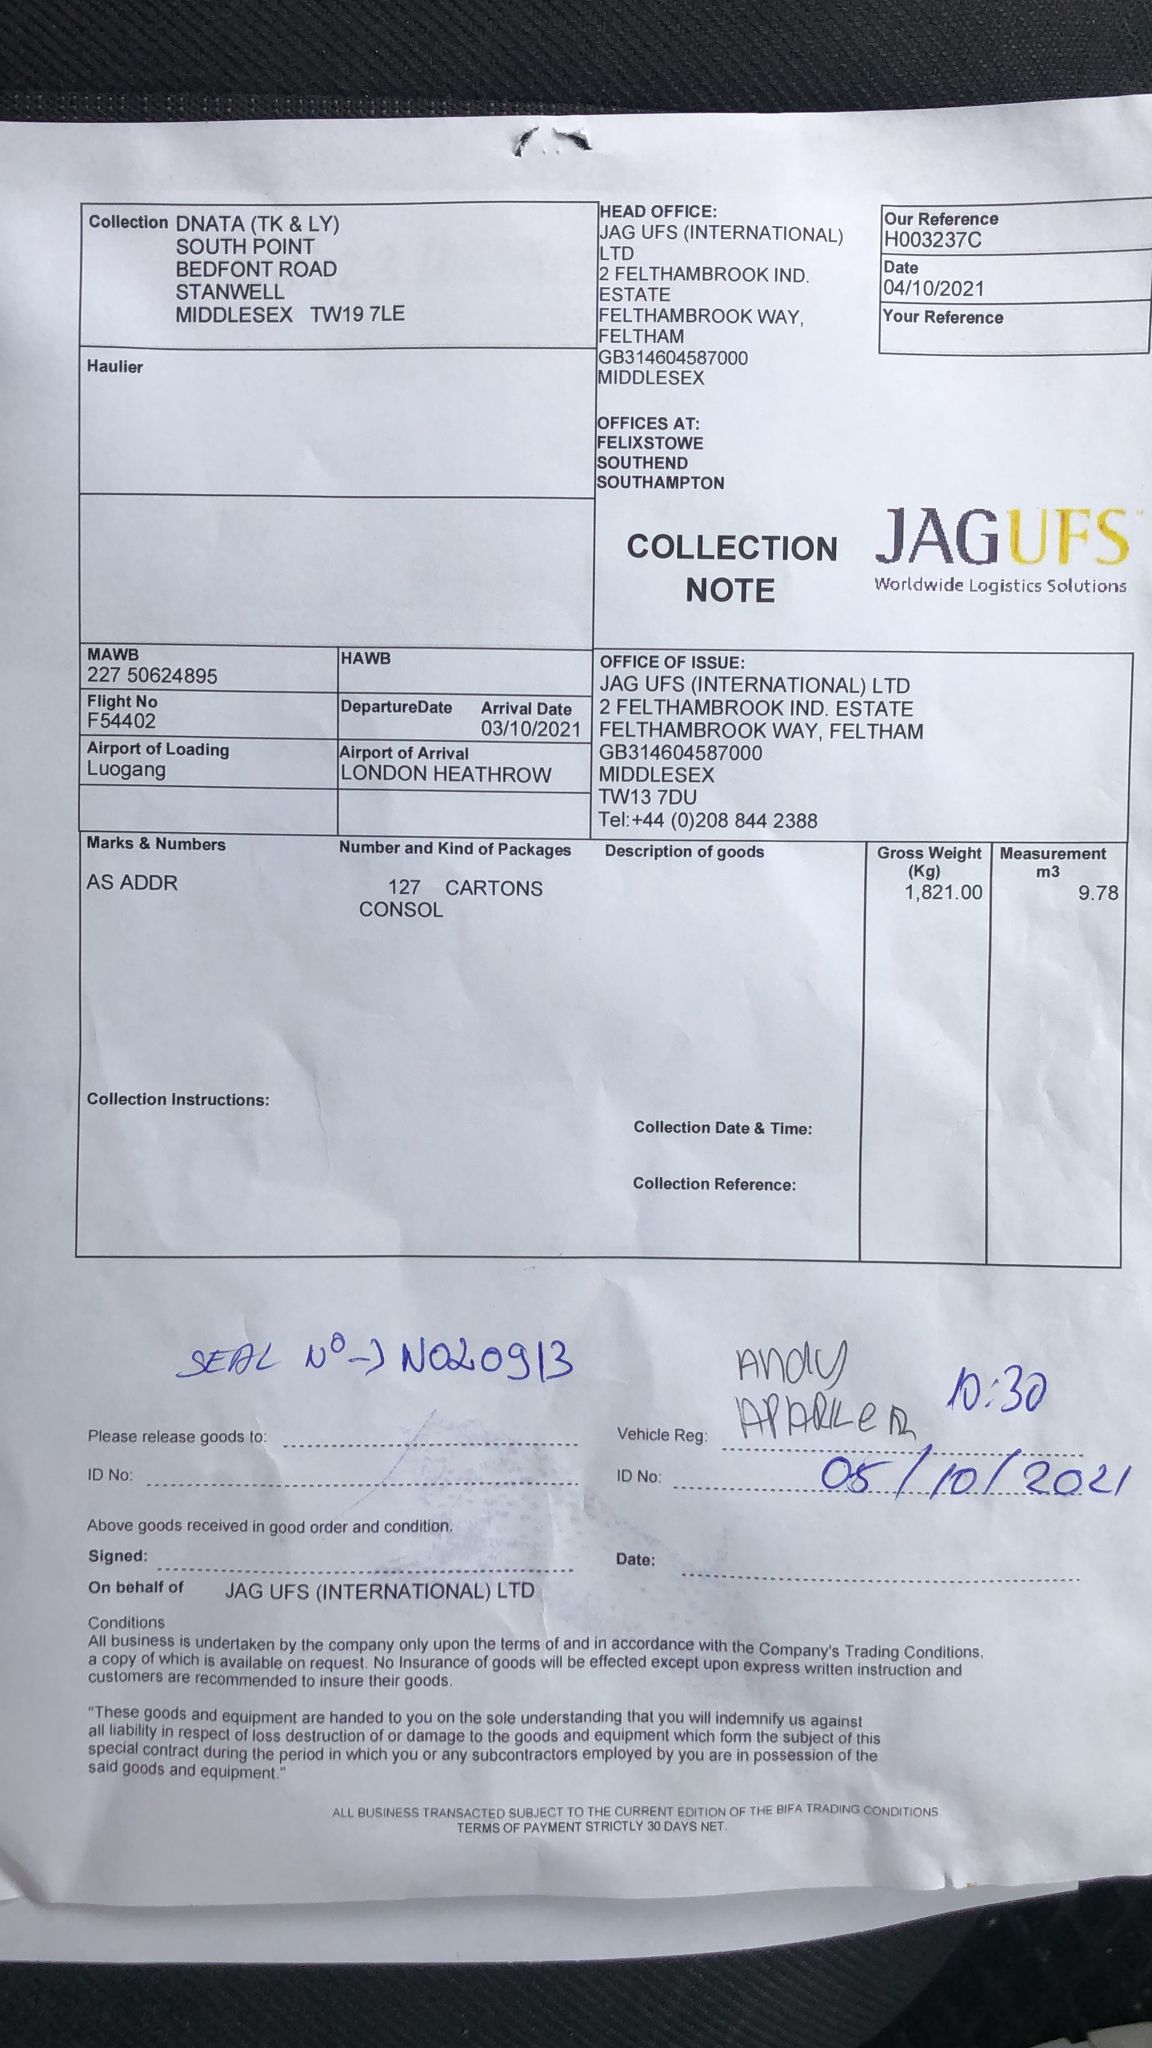 Collection DNATA (TK & LY)
SOUTH POINT
BEDFONT ROAD
STANWELL
MIDDLESEX TW19 7LE
HEAD OFFICE:
JAG UFS (INTERNATIONAL)
LTD
2 FELTHAMBROOK IND.
ESTATE
FELTHAMBROOK WAY,
FELTHAM
GB314604587000
MIDDLESEX
Our Reference
H003237C
Date
04/10/2021
Your Reference
Haulier
OFFICES AT:
FELIXSTOWE
SOUTHEND
SOUTHAMPTON
COLLECTION
NOTE
JAGUFS
Worldwide Logistics Solutions
MAWB
227 50624895
HAWB
Flight No
F54402
DepartureDate
Arrival Date
03/10/2021
Airport of Loading
Luogang
Airport of Arrival
LONDON HEATHROW
OFFICE OF ISSUE:
JAG UFS (INTERNATIONAL) LTD
2 FELTHAMBROOK IND. ESTATE
FELTHAMBROOK WAY, FELTHAM
GB314604587000
MIDDLESEX
TW13 7DU
Tel:+44 (0)208 844 2388
Marks & Numbers
Number and Kind of Packages
Description of goods
Gross Weight
(Kg)
Measurement
m3
AS ADDR
127 CARTONS
CONSOL
1,821.00
9.78
Collection Instructions:
Collection Date & Time:
Collection Reference:
SEAL Nº → N020913
ANDY
APARKER
10:30
Please release goods to:
Vehicle Reg:
ID No:
ID No:
05/10/2021
Above goods received in good order and condition.
Signed:
Date:
On behalf of JAG UFS (INTERNATIONAL) LTD
Conditions
All business is undertaken by the company only upon the terms of and in accordance with the Company's Trading Conditions,
a copy of which is available on request. No Insurance of goods will be effected except upon express written instruction and
customers are recommended to insure their goods.
"These goods and equipment are handed to you on the sole understanding that you will indemnify us against
all liability in respect of loss destruction of or damage to the goods and equipment which form the subject of this
special contract during the period in which you or any subcontractors employed by you are in possession of the
said goods and equipment."
ALL BUSINESS TRANSACTED SUBJECT TO THE CURRENT EDITION OF THE BIFA TRADING CONDITIONS
TERMS OF PAYMENT STRICTLY 30 DAYS NET.